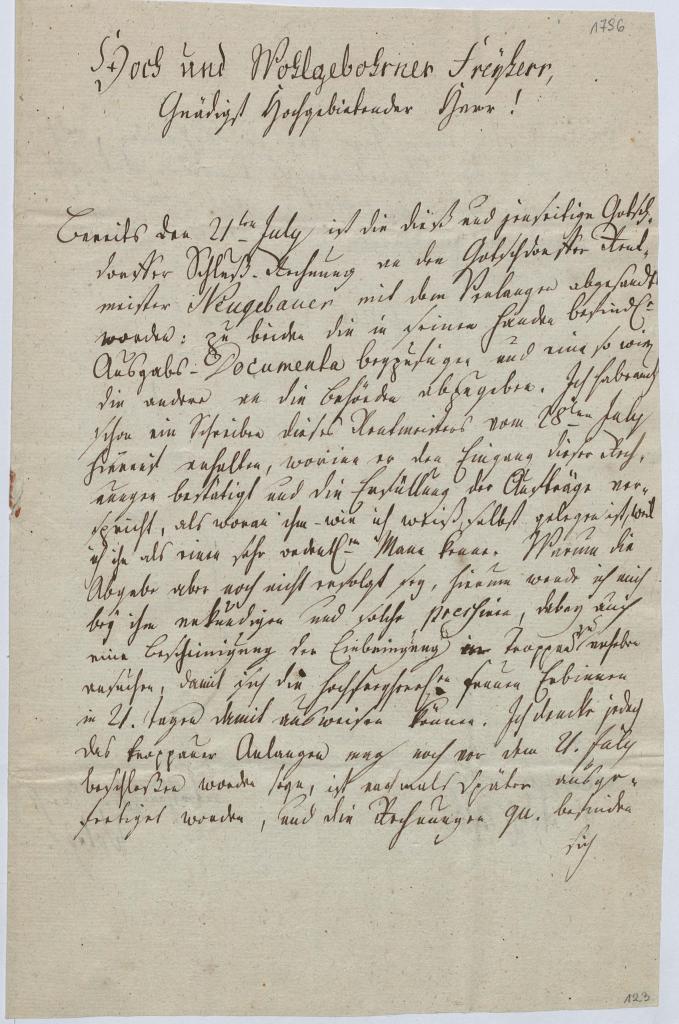 1796
Hoch und Wohlgebohrner Freyherr,
Gnädigst Hochgebietender Herr!
Bereits den 21ten July ist die dieß und jenseitige Gotsch-
dorffer Schluß-Rechnung an den Gotschdorffer Rent-
meister Neugebauer mit dem Verlangen abgesandt
worden: zu beiden die in seinen Händen befindl.
Ausgabs-Documenta beyzufügen und eine so wie
die andere an die Behörden abzugeben. Ich habe auch
schon ein Schreiben dieses Rentmeisters vom 28ten July
hierauf erhalten, worinn er den Eingang dieser Rech-
nungen bestätigt und die Erfüllung der Aufträge ver-
spricht, als woran ihm – wie ich weiß, selbst gelegen ist, weil
ich ihn als einen sehr ordentl. Mann kenne. Warum die
Abgabe aber noch nicht erfolgt sey, hierum werde ich mich
bey ihm erkundigen und solche pressiren, dabey auch
eine Bescheinigung der Einbringung in Troppau
ansuchen, damit sich die Frauen Erbinnen
in 21. Tagen damit ausweisen können. Ich dencke jedoch
das Troppauer Anlangen mag noch vor dem 21. July
beschloßen worden seyn, ist nachmals später ausge-
fertiget worden, und die Rechnungen qu. befinden
sich
123